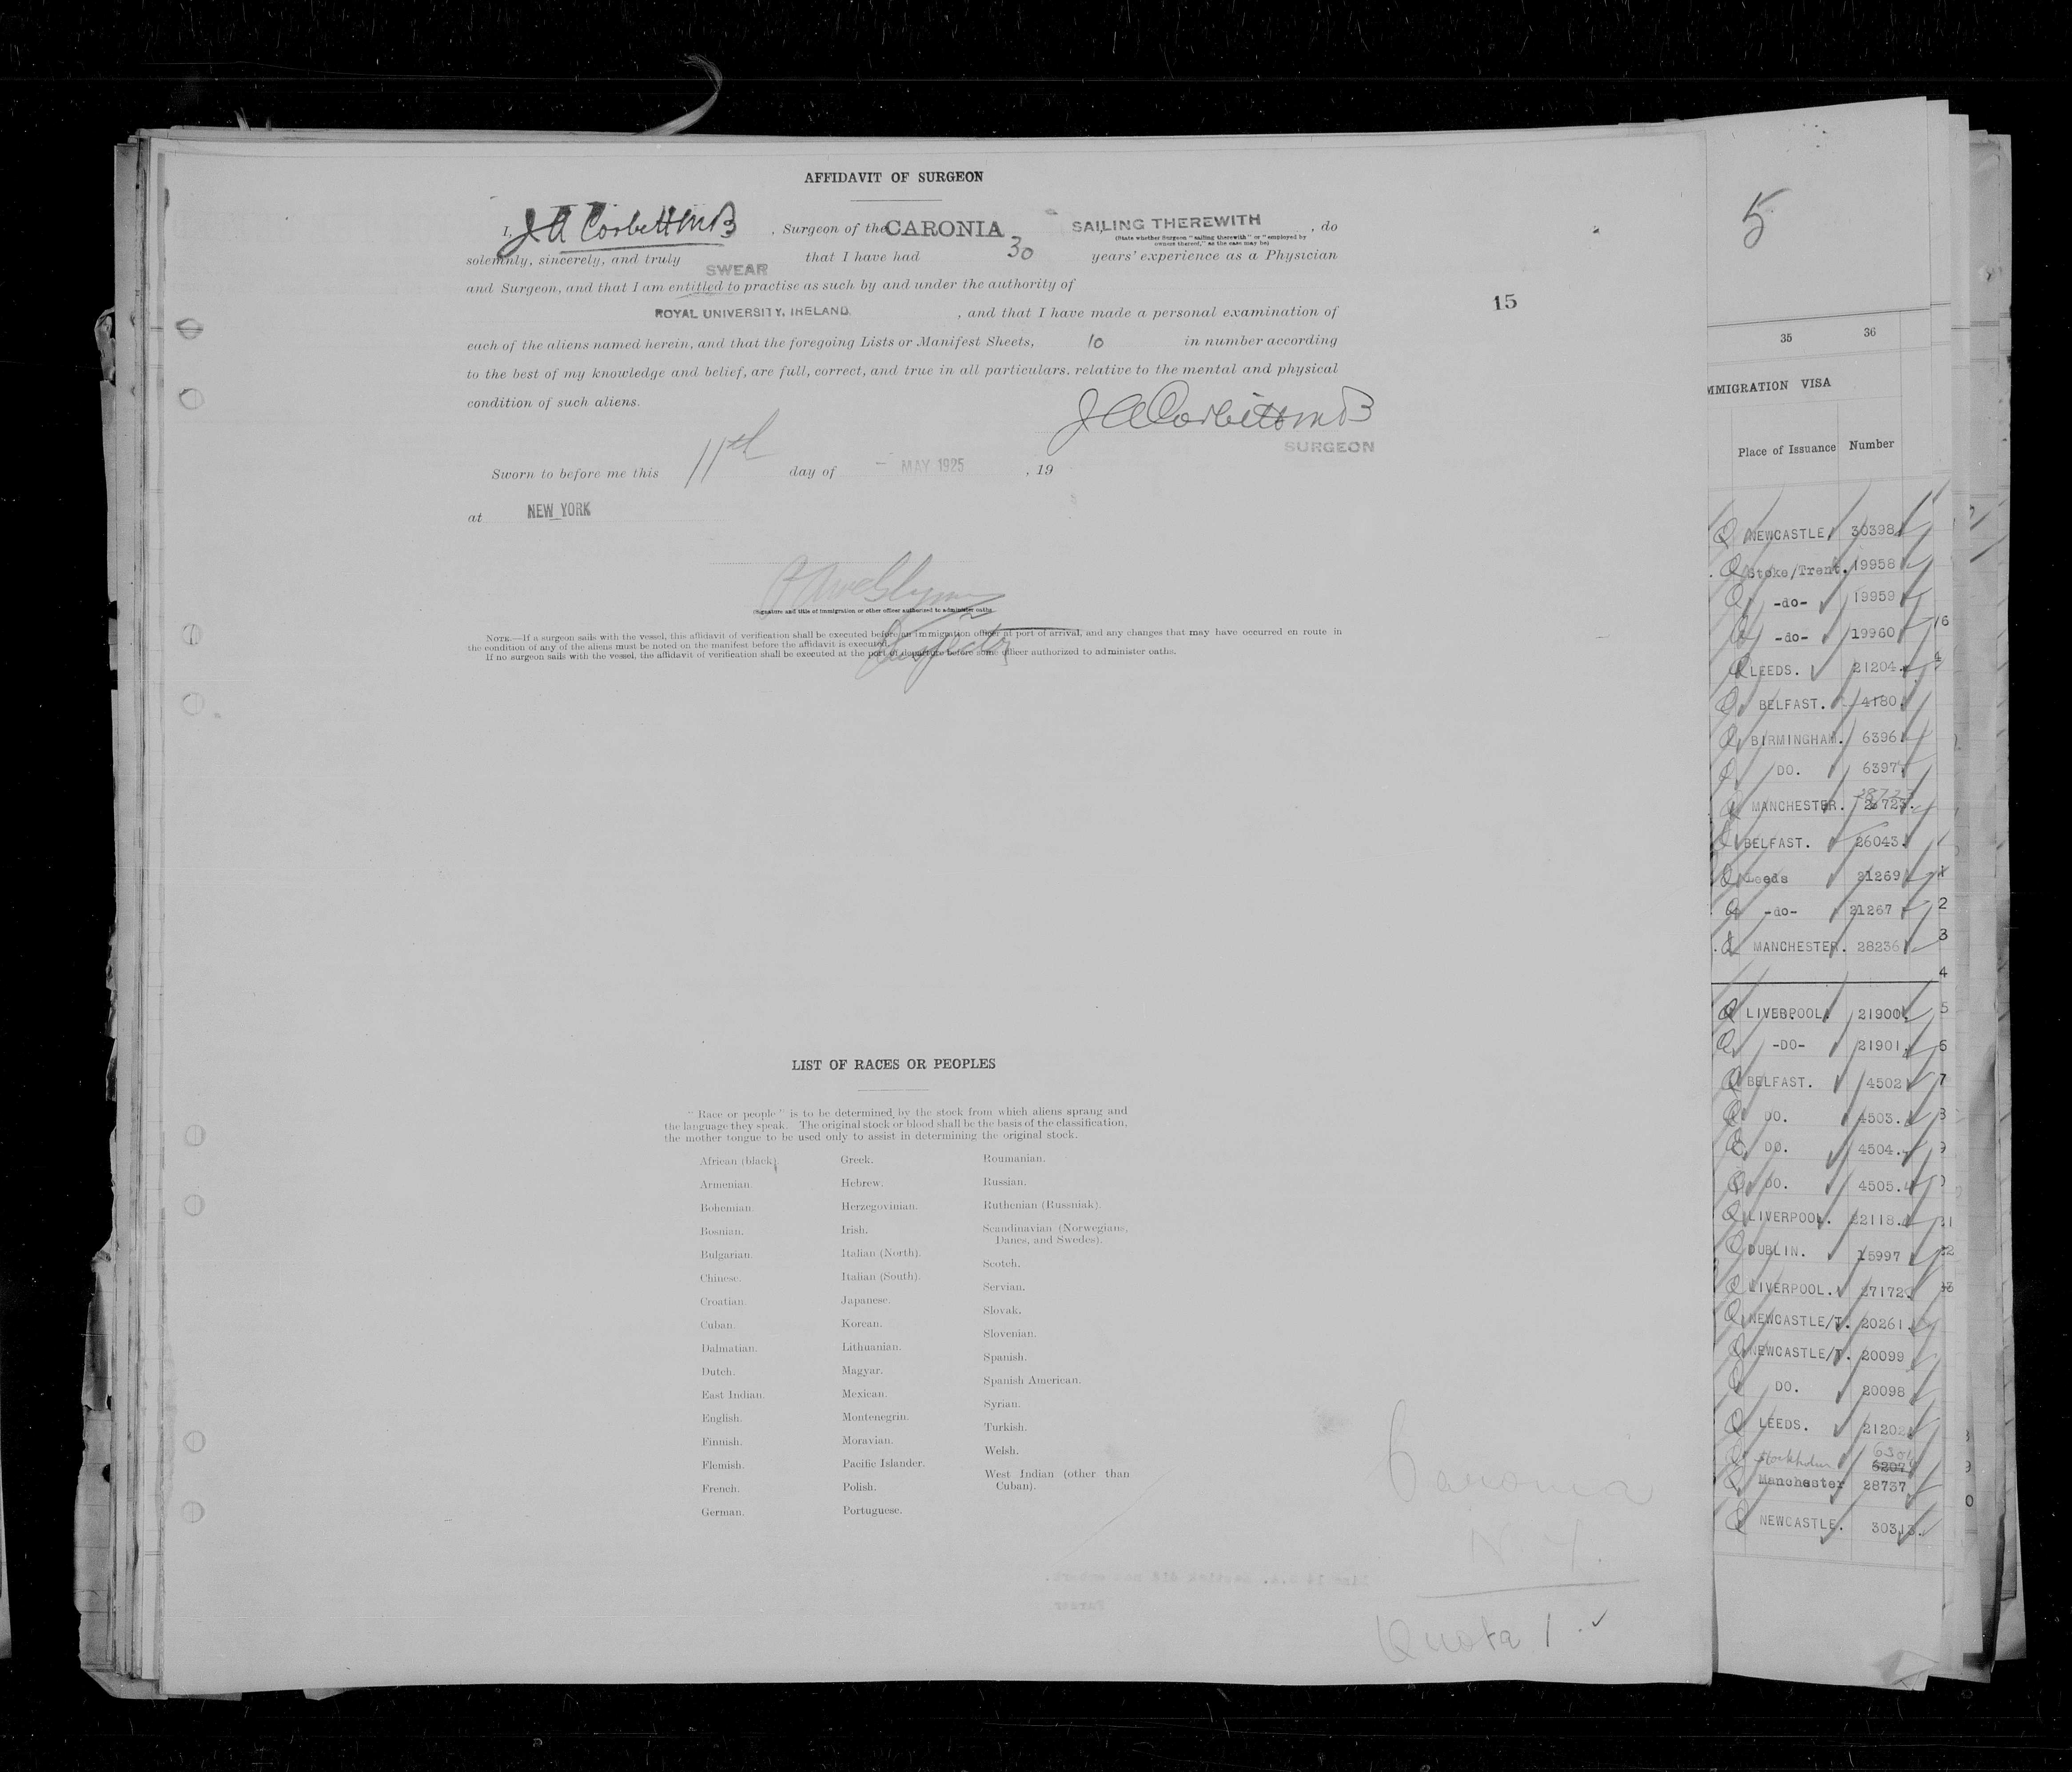 AFFIDAVIT OF SURGEON
I, J A Corbett MB , Surgeon of the CARONIA SAILING THEREWITH , do
(State whether Surgeon "sailing therewith" or "employed by
owners thereof," as the case may be)
solemnly, sincerely, and truly SWEAR that I have had 30 years' experience as a Physician
and Surgeon, and that I am entitled to practise as such by and under the authority of
ROYAL UNIVERSITY, IRELAND , and that I have made a personal examination of
15
each of the aliens named herein, and that the foregoing Lists or Manifest Sheets, 10 in number according
to the best of my knowledge and belief, are full, correct, and true in all particulars. relative to the mental and physical
condition of such aliens.
J A Corbett MB
SURGEON
Sworn to before me this 11th day of - MAY 1925 , 19
at NEW YORK
(Signature and title of immigration or other officer authorized to administer oaths
Inspector
NOTE.—If a surgeon sails with the vessel, this affidavit of verification shall be executed before an immigration officer at port of arrival, and any changes that may have occurred en route in
the condition of any of the aliens must be noted on the manifest before the affidavit is executed.
If no surgeon sails with the vessel, the affidavit of verification shall be executed at the port of departure before some officer authorized to administer oaths.
LIST OF RACES OR PEOPLES
"Race or people" is to be determined by the stock from which aliens sprang and
the language they speak. The original stock or blood shall be the basis of the classification,
the mother tongue to be used only to assist in determining the original stock.
African (black).
Armenian.
Bohemian.
Bosnian.
Bulgarian.
Chinese.
Croatian.
Cuban.
Dalmatian.
Dutch.
East Indian.
English.
Finnish.
Flemish.
French.
German.
Greek.
Hebrew.
Herzegovinian.
Irish.
Italian (North).
Italian (South).
Japanese.
Korean.
Lithuanian.
Magyar.
Mexican.
Montenegrin.
Moravian.
Pacific Islander.
Polish.
Portuguese.
Roumanian.
Russian.
Ruthenian (Russniak).
Scandinavian (Norwegians,
Danes, and Swedes).
Scotch.
Servian.
Slovak.
Slovenian.
Spanish.
Spanish American.
Syrian.
Turkish.
Welsh.
West Indian (other than
Cuban).
Caronia
N.Y.
Quota 1. ✓
5
35 36
MMIGRATION VISA
Place of Issuance Number
Q NEWCASTLE. 30398
Q Stoke/Trent. 19958
Q -do- 19959
Q -do- 19960
Q LEEDS. 21204.
Q BELFAST. 4180.
Q BIRMINGHAM. 6396
Q DO. 6397
Q MANCHESTER. 28723.
Q BELFAST. 26043.
Q Leeds 21269
Q -do- 21267
Q MANCHESTER. 28236
Q LIVERPOOL. 21900
Q -DO- 21901.
Q BELFAST. 4502
Q DO. 4503.
Q DO. 4504.
Q DO. 4505.
Q LIVERPOOL. 22118.
Q DUBLIN. 15997
Q LIVERPOOL. 27172.
Q NEWCASTLE/T. 20261.
Q NEWCASTLE/T. 20099
Q DO. 20098
Q LEEDS. 21202
Q Stockholm 6207
Q Manchester 28737
Q NEWCASTLE. 30313.